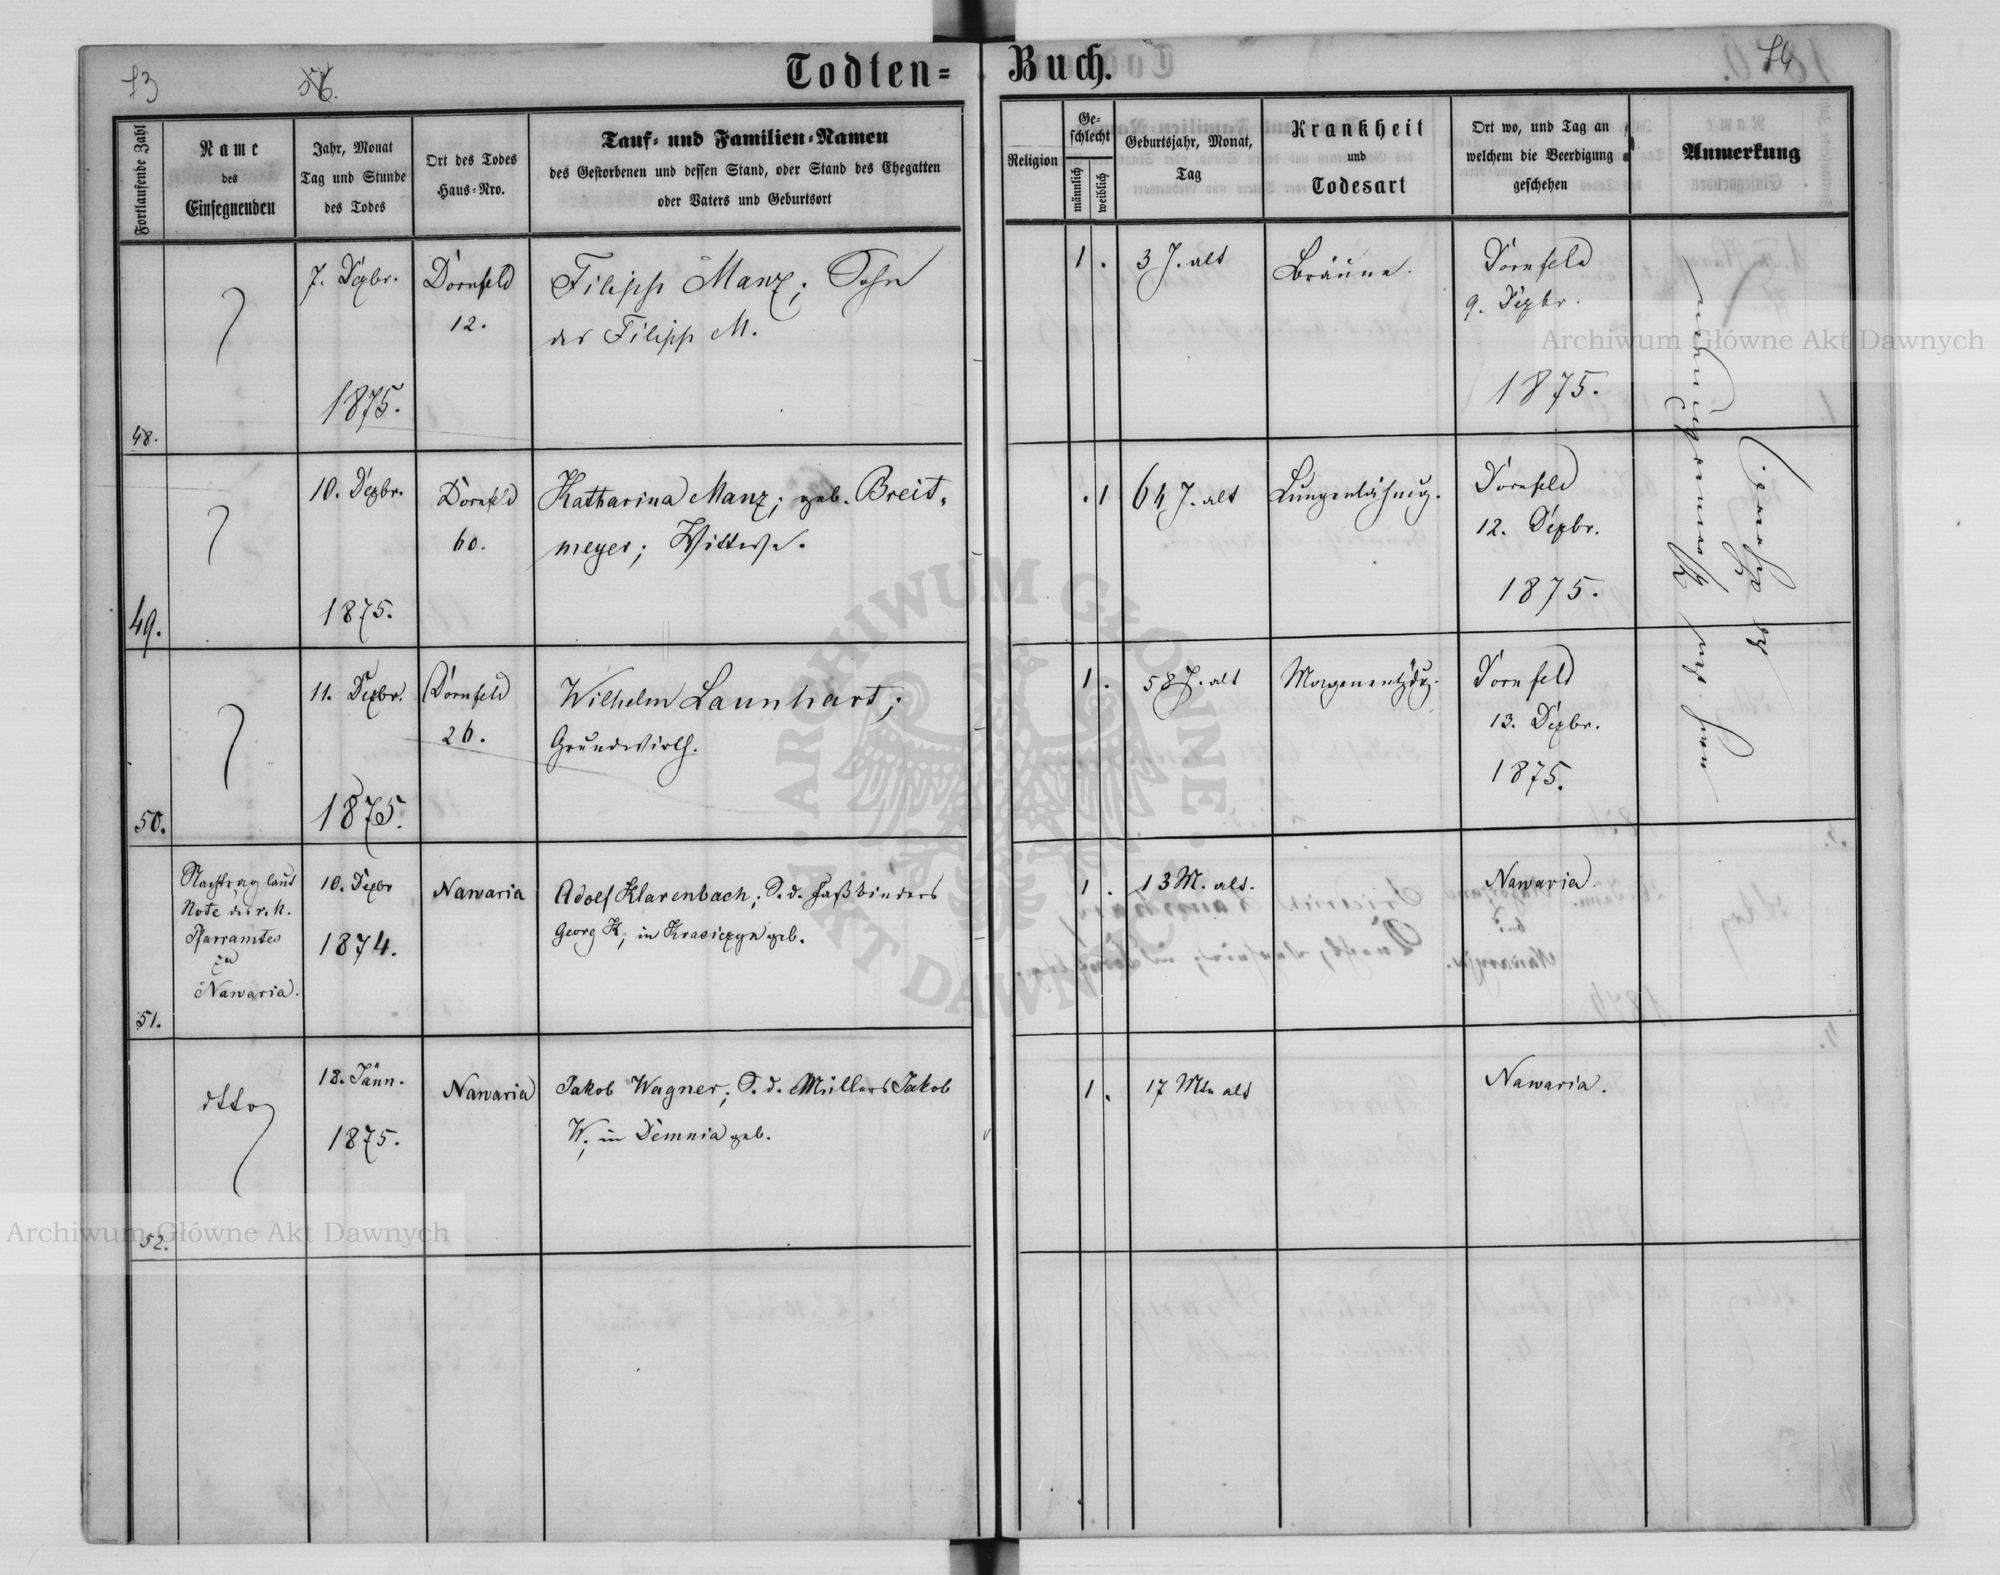 73
76.
Todten-Buch.
74
Fortlaufende Zahl
Name
des
Einsegnenden
Jahr, Monat
Tag und Stunde
des Todes
Ort des Todes
Haus-Nro.
Tauf- und Familien-Namen
des Gestorbenen und dessen Stand, oder Stand des Ehegatten
oder Vaters und Geburtsort
Religion
Geschlecht
männlich
weiblich
Geburtsjahr, Monat,
Tag
Krankheit
und
Todesart
Ort wo, und Tag an
welchem die Beerdigung
geschehen
Anmerkung
48.
7. Dezbr.
1875.
Dornfeld
12.
Filipp Manz; Sohn
des Filipp M.
1 .
3 J. alt
Bräune.
Dornfeld
9. Dezbr.
1875.
49.
10. Dezbr.
1875.
Dornfeld
60.
Katharina Manz; geb. Breit-
meyer; Wittwe.
. 1
64 J. alt
Lungenlähmg.
Dornfeld
12. Dezbr.
1875.
50.
11. Dezbr.
1875.
Dornfeld
26.
Wilhelm Launhart;
Grundwirth.
1 .
58 J. alt
Magenentzdg.
Dornfeld
13. Dezbr.
1875.
51.
Nachtrag laut
Note des r. k.
Pfarramtes
zu
Nawaria.
10. Dezbr
1874.
Nawaria
Adolf Klarenbach; S. d. Faßbinders
Georg K; in Krasiczyn geb.
1 .
13 M. alt.
Nawaria.
52.
dtto
18. Jänn.
1875.
Nawaria
Jakob Wagner; S. d. Müllers Jakob
W; in Demnia geb.
1 .
17 Mte alt
Nawaria.
Archiwum Główne Akt Dawnych
Archiwum Główne Akt Dawnych
ARCHIWUM GŁÓWNE AKT DAWNYCH